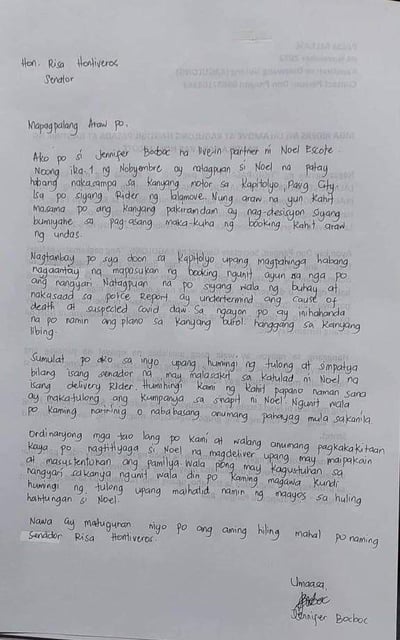 Hon. Risa Hontiveros
Senator
Mapagpalang Araw po.
Ako po si Jennifer Bocboc na live-in partner ni Noel Escote.
Noong ika-1 ng Nobyembre ay natagpuan si Noel na patay
habang nakasampa sa kanyang motor sa kapitolyo, Pasig City.
Isa po siyang Rider ng lalamove. Nung araw na yun kahit
masama po ang kanyang pakiramdam ay nag-desisyon siyang
bumiyahe sa pag-asang maka-kuha ng booking kahit araw
ng undas.
Nagtambay po sya doon sa kapitolyo upang magpahinga habang
nagaantay ng mapasukan ng booking ngunit ayun na nga po
ang nangyari Natagpuan na po siyang wala ng buhay at
nakasaad sa police Report ay undertermind ang cause of
death at suspected covid daw Sa ngayon po ay inihahanda
na po namin ang plano sa kanyang burol hanggang sa kanyang
libing.
Sumulat po ako sa inyo upang humingi ng tulong at simpatya
bilang isang senador na may malasakit sa katulad ni Noel na
isang delivery Rider. Humihingi kami ng kahit papano naman sana
ay makatulong ang kumpanya sa sinapit ni Noel. Ngunit wala
po kaming narinig o nababasang anumang pahayag mula sakanila.
Ordinaryong mga tao lang po kami at walang anumang pagkakakitaan
kaya po nagtityaga si Noel na magdeliver upang may maipakain
at masustentuhan ang pamilya. Wala pong may kagustuhan sa
nangyari sakanya ngunit wala din po kaming magawa kundi
humingi ng tulong upang maihatid namin ng maayos sa huling
hantungan si Noel.
Nawa ay matugunan niyo po ang aming hiling mahal po naming
Senador Risa Hontiveros.
Umaasa,
Jennifer Bocboc